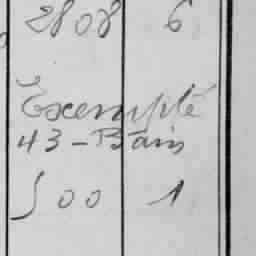 2808 6
Exempté
43 - Bain
500 1